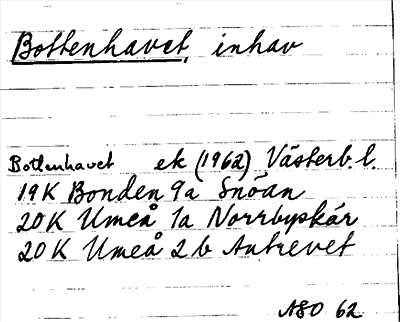 Bottenhavet, inhav
Bottenhavet ek (1962) Västerb. l.
19K Bonden 9a Snöan
20K Umeå 1a Norrbyskär
20K Umeå 2b Antrevet
ASO 62